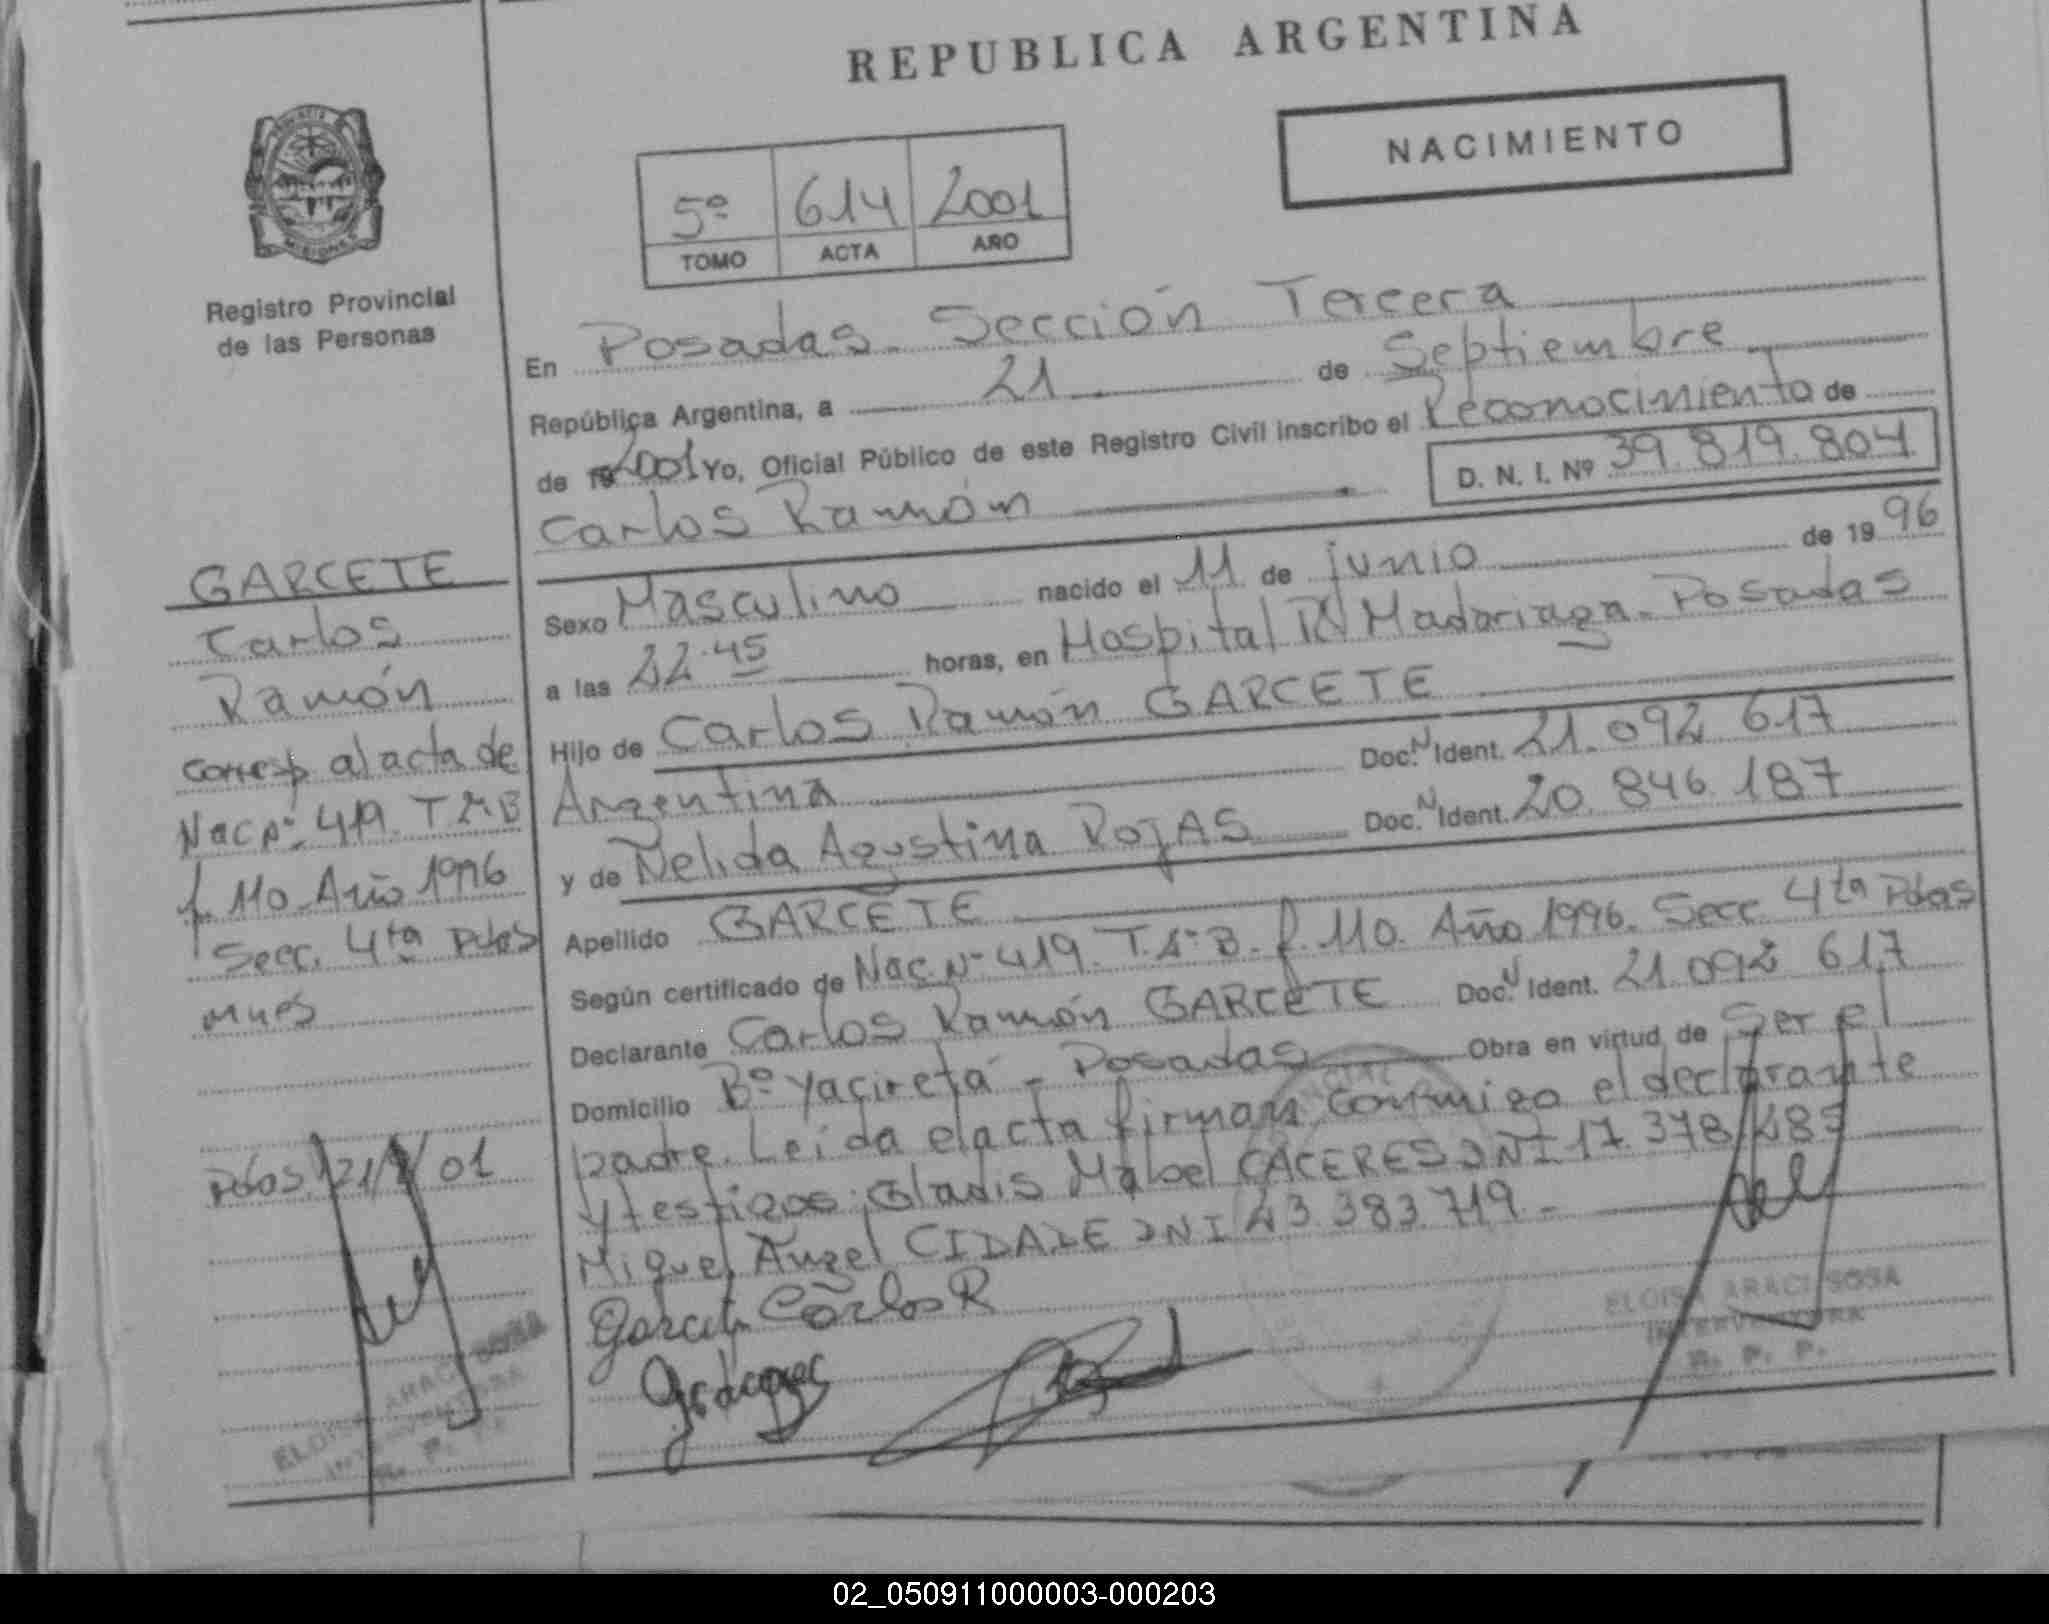 REPUBLICA ARGENTINA
NACIMIENTO
5º 614 2001
TOMO ACTA AÑO
Registro Provincial
de las Personas
GARCETE
Carlos
Ramón
corresp al acta de
Nac Nº 419. T
f. 110. Año 1996
Secc. 4ta Pdas
Mnes
Pdas 21/9/01
ELOISA ARACI SOSA
INTERVENTORA
R. P. P.
En Posadas. Sección Tercera
República Argentina, a 21 de Septiembre
de 2001 Yo, Oficial Público de este Registro Civil inscribo el Reconocimiento de
Carlos Ramón D. N. I. Nº 39.819.804
Sexo Masculino nacido el 11 de junio de 1996
a las 22.45 horas, en Hospital Dr Madariaga - Posadas
Hijo de Carlos Ramón GARCETE
Argentina Doc. N Ident. 21.092.617
y de Nelida Agustina ROJAS Doc. N Ident. 20.846.187
Apellido GARCETE
Según certificado de Nac. Nº 419. T. B. f. 110. Año 1996. Secc. 4ta Pdas
Declarante Carlos Ramón GARCETE Doc. N Ident. 21.092.617
Domicilio Bº Yacireta - Posadas Obra en virtud de Ser el
padre. Leida el acta firman conmigo el declarante
y testigos: Gladis Mabel CACERES DNI 17.378.485
Miguel Angel CIDADE DNI 23.383.719.-
Garcete Carlos R
ELOISA ARACI SOSA
INTERVENTORA
R. P. P.
02_050911000003-000203